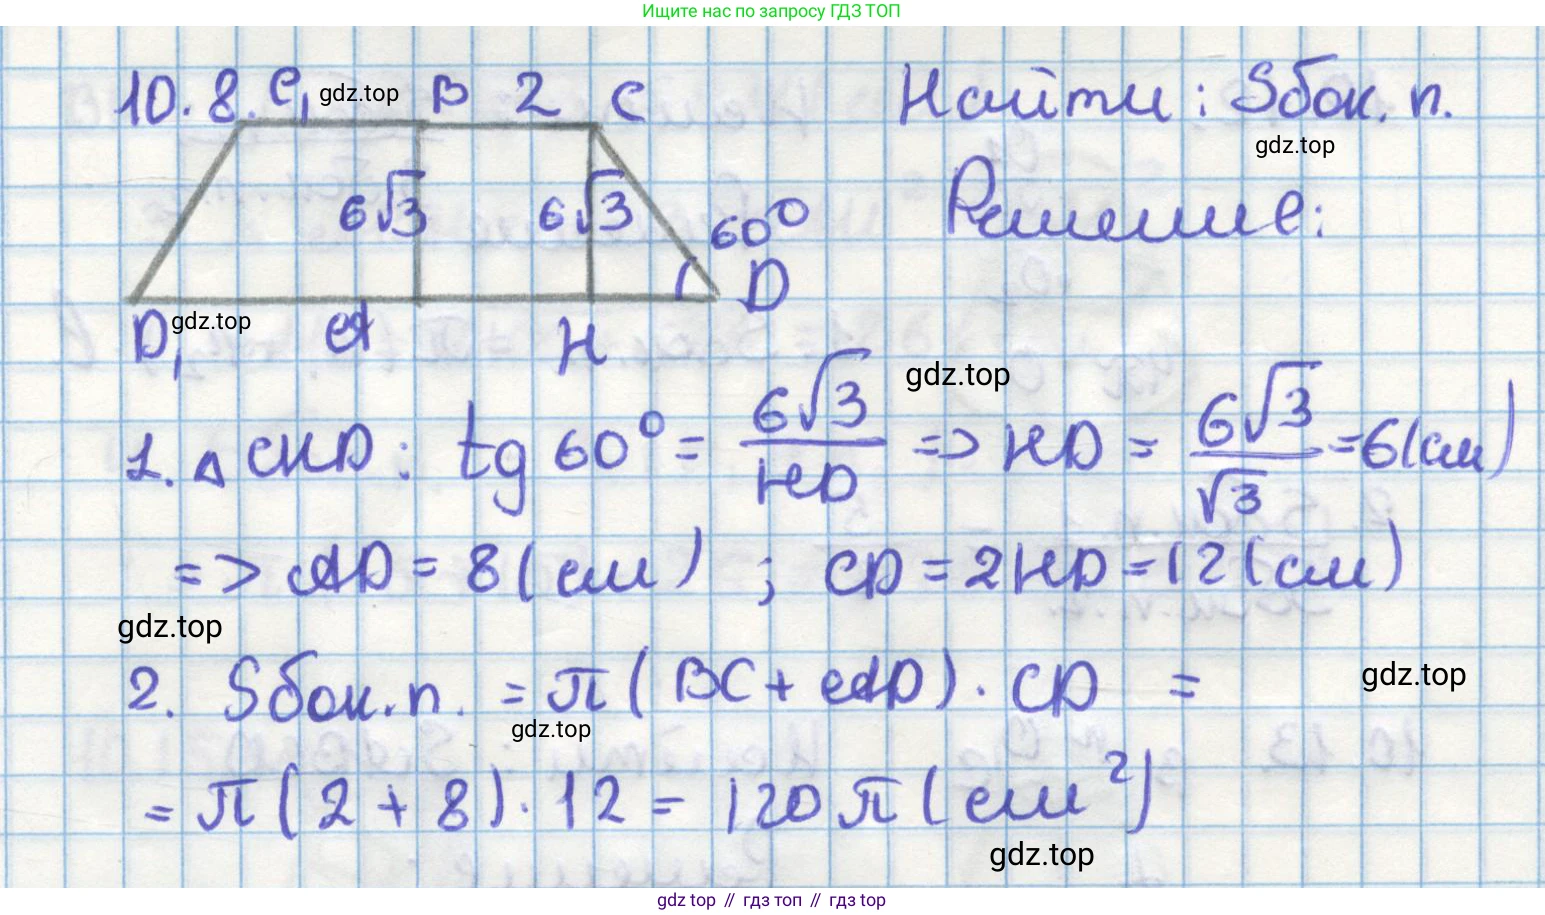 Ищите нас по запросу ГДЗ ТОП
10.8. C₁ gdz.top B 2 C
Найти: Sбок. п.
gdz.top
6√3 6√3 60°
Решение:
D₁ gdz.top A H D
gdz.top
1. △ CHD: tg 60° = 6√3/HD => HD = 6√3/√3 = 6(см)
=> AD = 8(см) ; CD = 2HD = 12(см)
gdz.top
2. Sбок. п. = π(BC + AD) · CD =
gdz.top
gdz.top
= π(2 + 8) · 12 = 120π(см²)
gdz.top
gdz top // гдз топ // гдз top